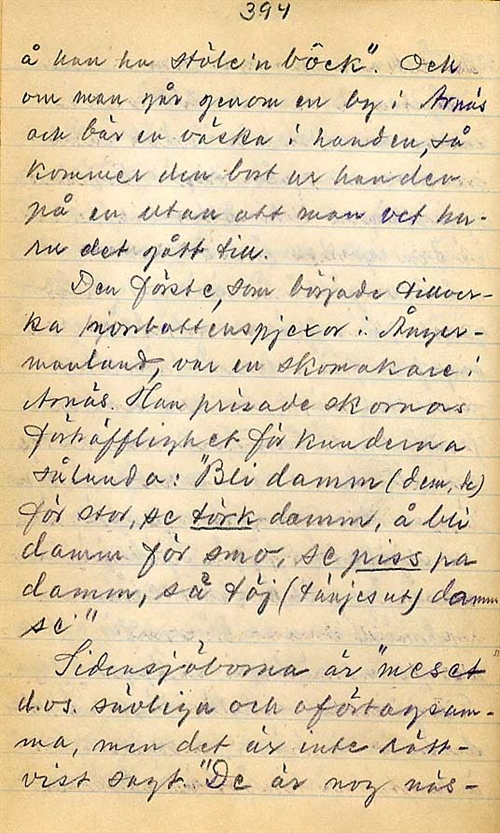 394
å han ha stöle'n böck". Och
om man går genom en by i Arnäs
och bär en väcka i handen, så
kommer den bort ur handen
på en utan att man vet hu-
ru det gått till.
Den förste, som började tillver-
ka i Ånger-
manland, var en skomakare i
Arnäs. Han prisade skornas
förträfflighet för kunderna
sålunda: "Bli damm (dem, de)
för stor, se törk damm, å bli
damm för smo, se piss pa
damm, så töj (tänjes ut) damm
se"
Sidensjöborna är "meset"
d.v.s. sävliga och oföretagsam-
ma, men det är inte rätt-
vist sagt. "De är nog näs-